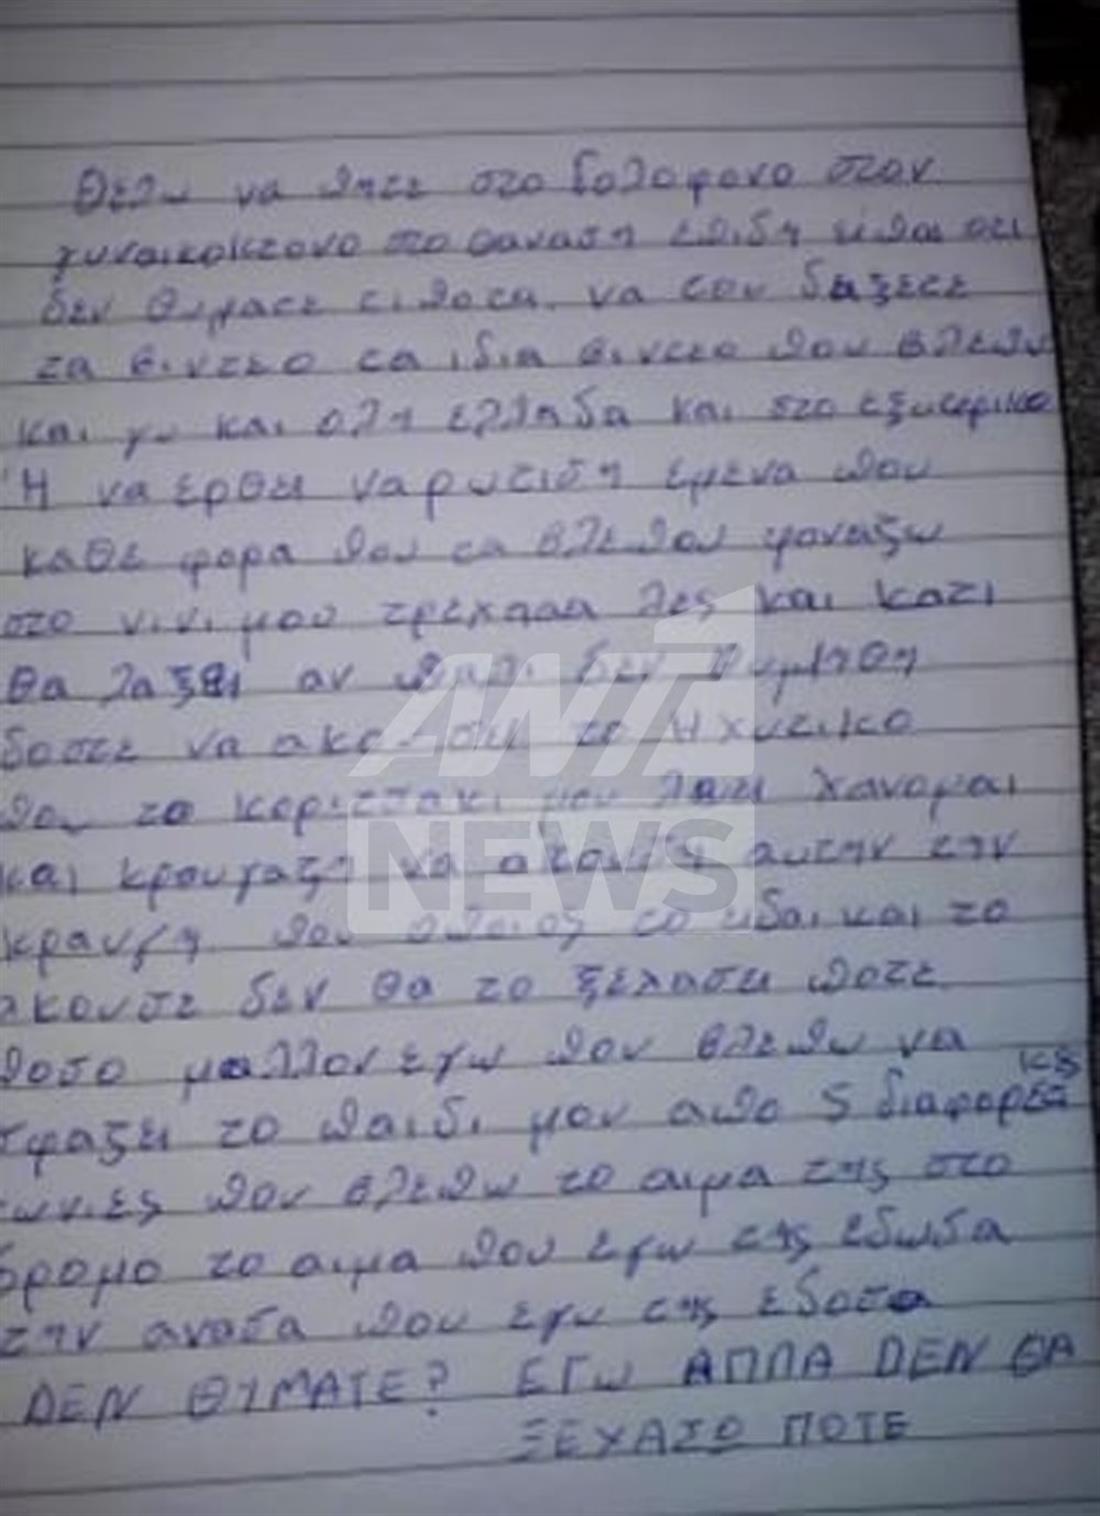 Θελω να πητε στο δολοφονο στον
γυναικοκτονο στο θαναση επιδη ειπαι οτι
δεν θυματε τιποτα. να του δειξετε
τα βιντεο τα ιδια βιντεο που βλεπω
και γω και ολη ελλαδα και στο εξωτερικο
Ή να ερθει να ρωτιδη εμενα που
καθε φορα που τα βλεπου φοναζω
στο νινι μου τρεχααα λες και κατι
θα λαξει αν παλι δεν θυμηθη
δοστε να ακουσει το Ηχητικο
που το κοριτσακι μου λαει χανομαι
και κραυγαζη να ακουση αυτην την
κραυγη που οποιος το ειδαι και το
ακουσε δεν θα το ξεχασει ποτε
ποσο μαλλον εγω που βλεπω να
σφαζει το παιδι μου απο 5 διαφορετικες
γωνιες που βλεπω το αιμα της στο
δρομο το αιμα που εγω της εδωσα
την ανασα που εγω της εδοσα
ΔΕΝ ΘΥΜΑΤΕ? ΕΓω ΑΠΠΑ ΔΕΝ ΘΑ
ΞΕΧΑΣΩ ΠΟΤΕ
ΑΝΤ1
NEWS